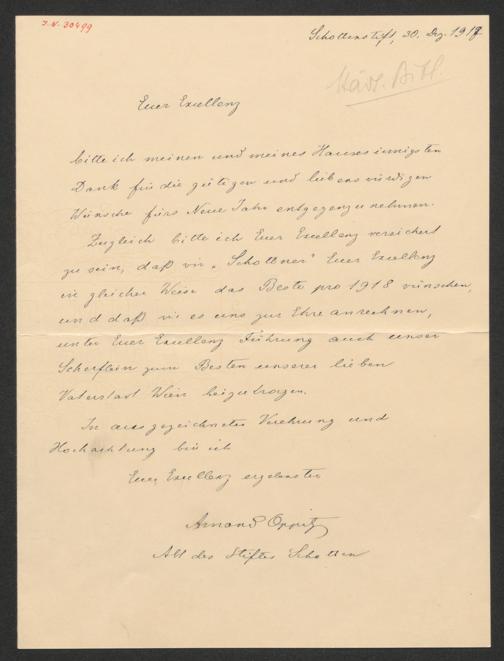 J.N. 30499
Schottenstift, 30. Dez. 1917
Städt. Bibl.
Euer Exzellenz
bitte ich meinen und meines Hauses innigsten
Dank für die gütigen und liebenswürdigen
Wünsche fürs Neue Jahr entgegenzunehmen.
Zugleich bitte ich Euer Exzellenz versichert
zu sein, daß wir „Schottner" Euer Exzellenz
in gleicher Weise das Beste pro 1918 wünschen,
und daß wir es uns zur Ehre anrechnen,
unter Euer Exzellenz Führung auch unser
Scherflein zum Besten unserer lieben
Vaterstadt Wien beizutragen.
In ausgezeichneter Verehrung und
Hochachtung bin ich
Euer Exzellenz ergebenster
Amand Oppitz
Abt des Stiftes Schotten